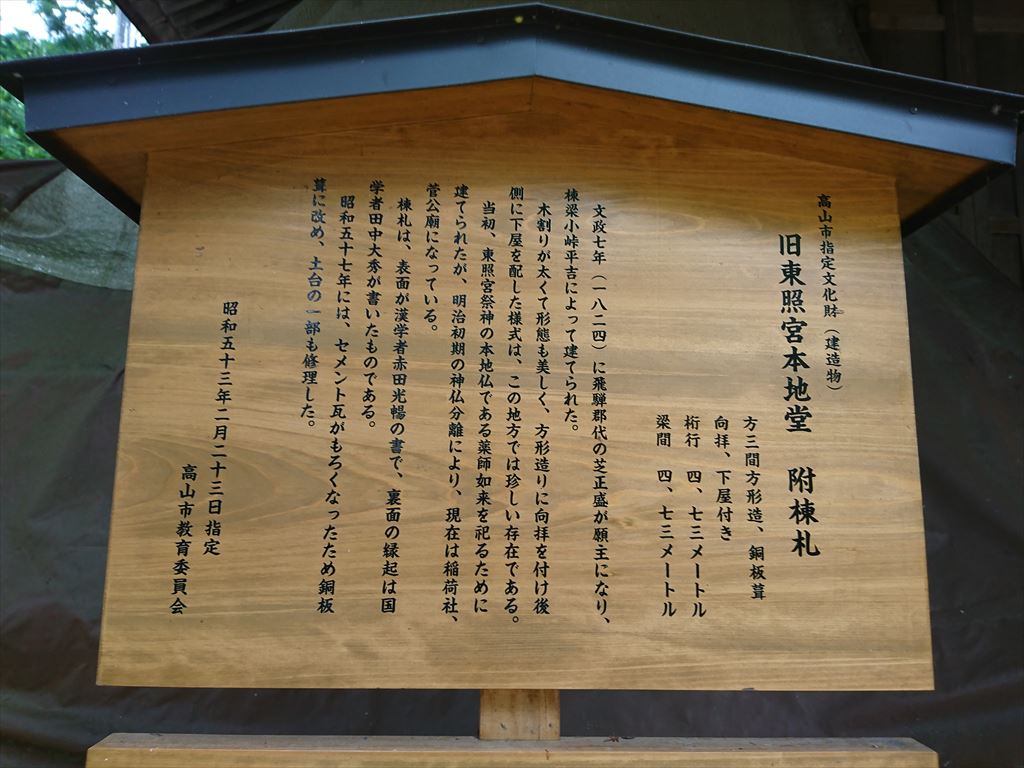 高山市指定文化財（建造物）
旧東照宮本地堂　附棟札
方三間方形造、銅板葺
向拝、下屋付き
桁行　四、七三メートル
梁間　四、七三メートル
文政七年（一八二四）に飛騨郡代の芝正盛が願主になり、
棟梁小峠平吉によって建てられた。
木割りが太くて形態も美しく、方形造りに向拝を付け後
側に下屋を配した様式は、この地方では珍しい存在である。
当初、東照宮祭神の本地仏である薬師如来を祀るために
建てられたが、明治初期の神仏分離により、現在は稲荷社、
菅公廟になっている。
棟札は、表面が漢学者赤田光暢の書で、裏面の縁起は国
学者田中大秀が書いたものである。
昭和五十七年には、セメント瓦がもろくなったため銅板
葺に改め、土台の一部も修理した。
昭和五十三年二月二十三日指定
高山市教育委員会